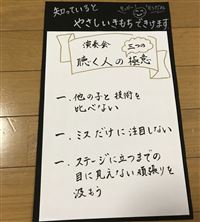 知っていると
やさしいきもちできけます
演奏会 三つの
聴く人の極意
一、他の子と技術を
比べない
一、ミスだけに注目しない
一、ステージに立つまでの
目に見えない頑張りを
汲もう